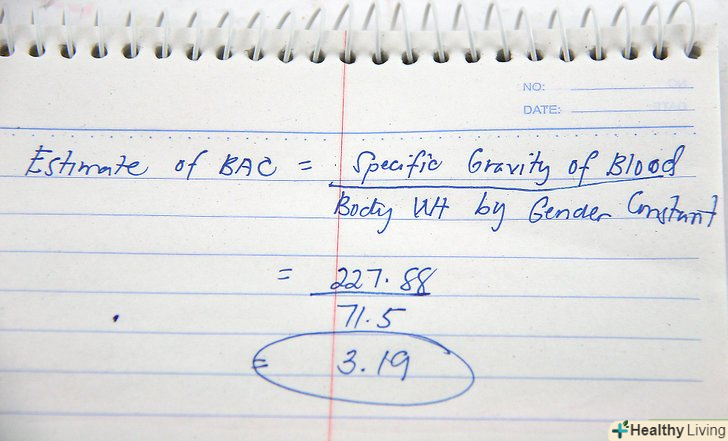 NO:
DATE:
Estimate of BAC = Specific Gravity of Blood
Body Wt by Gender Constant
= 227.88
71.5
= 3.19
Healthy Living